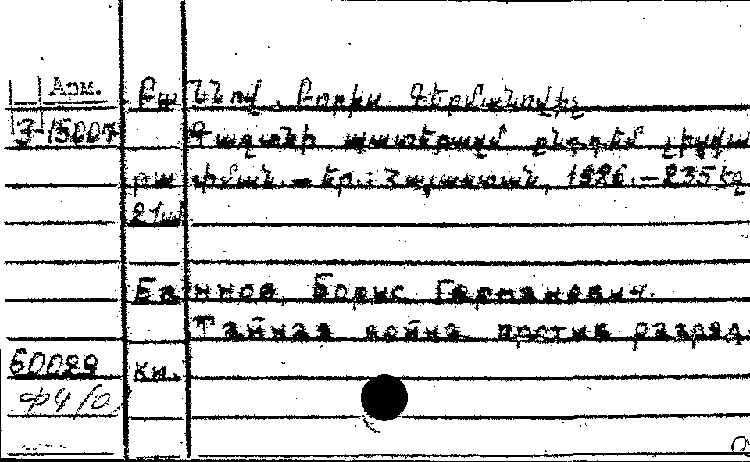 Арм. Բաննով, Բորիս Գերմանովիչ
3-15007 Գաղտնի պատերազմ ընդդեմ լիցքա
թափման. — Եր.: Հայաստան, 1986. — 235 էջ
21սմ
Баннов, Борис Германович.
Тайная война против разряд.
60029 кн.
ф4/0